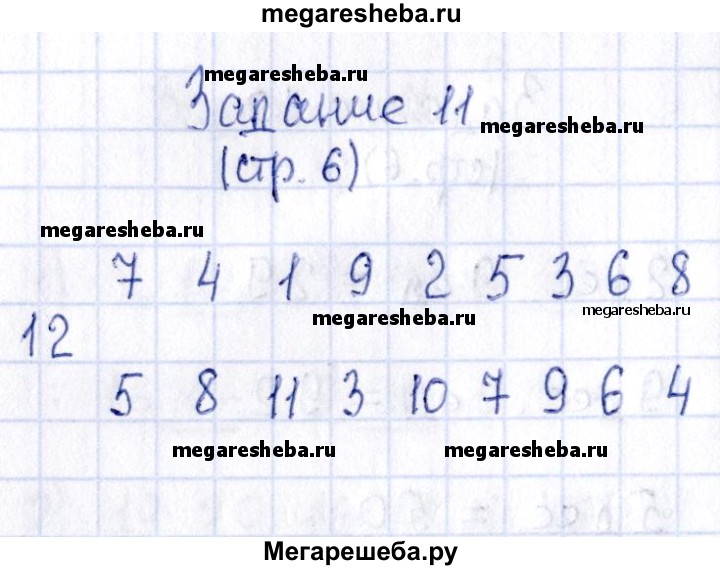 megaresheba.ru
megaresheba.ru
Задание 11
megaresheba.ru
(стр. 6)
megaresheba.ru
7 4 1 9 2 5 3 6 8
megaresheba.ru
megaresheba.ru
12
5 8 11 3 10 7 9 6 4
megaresheba.ru
megaresheba.ru
Мегарешеба.ру